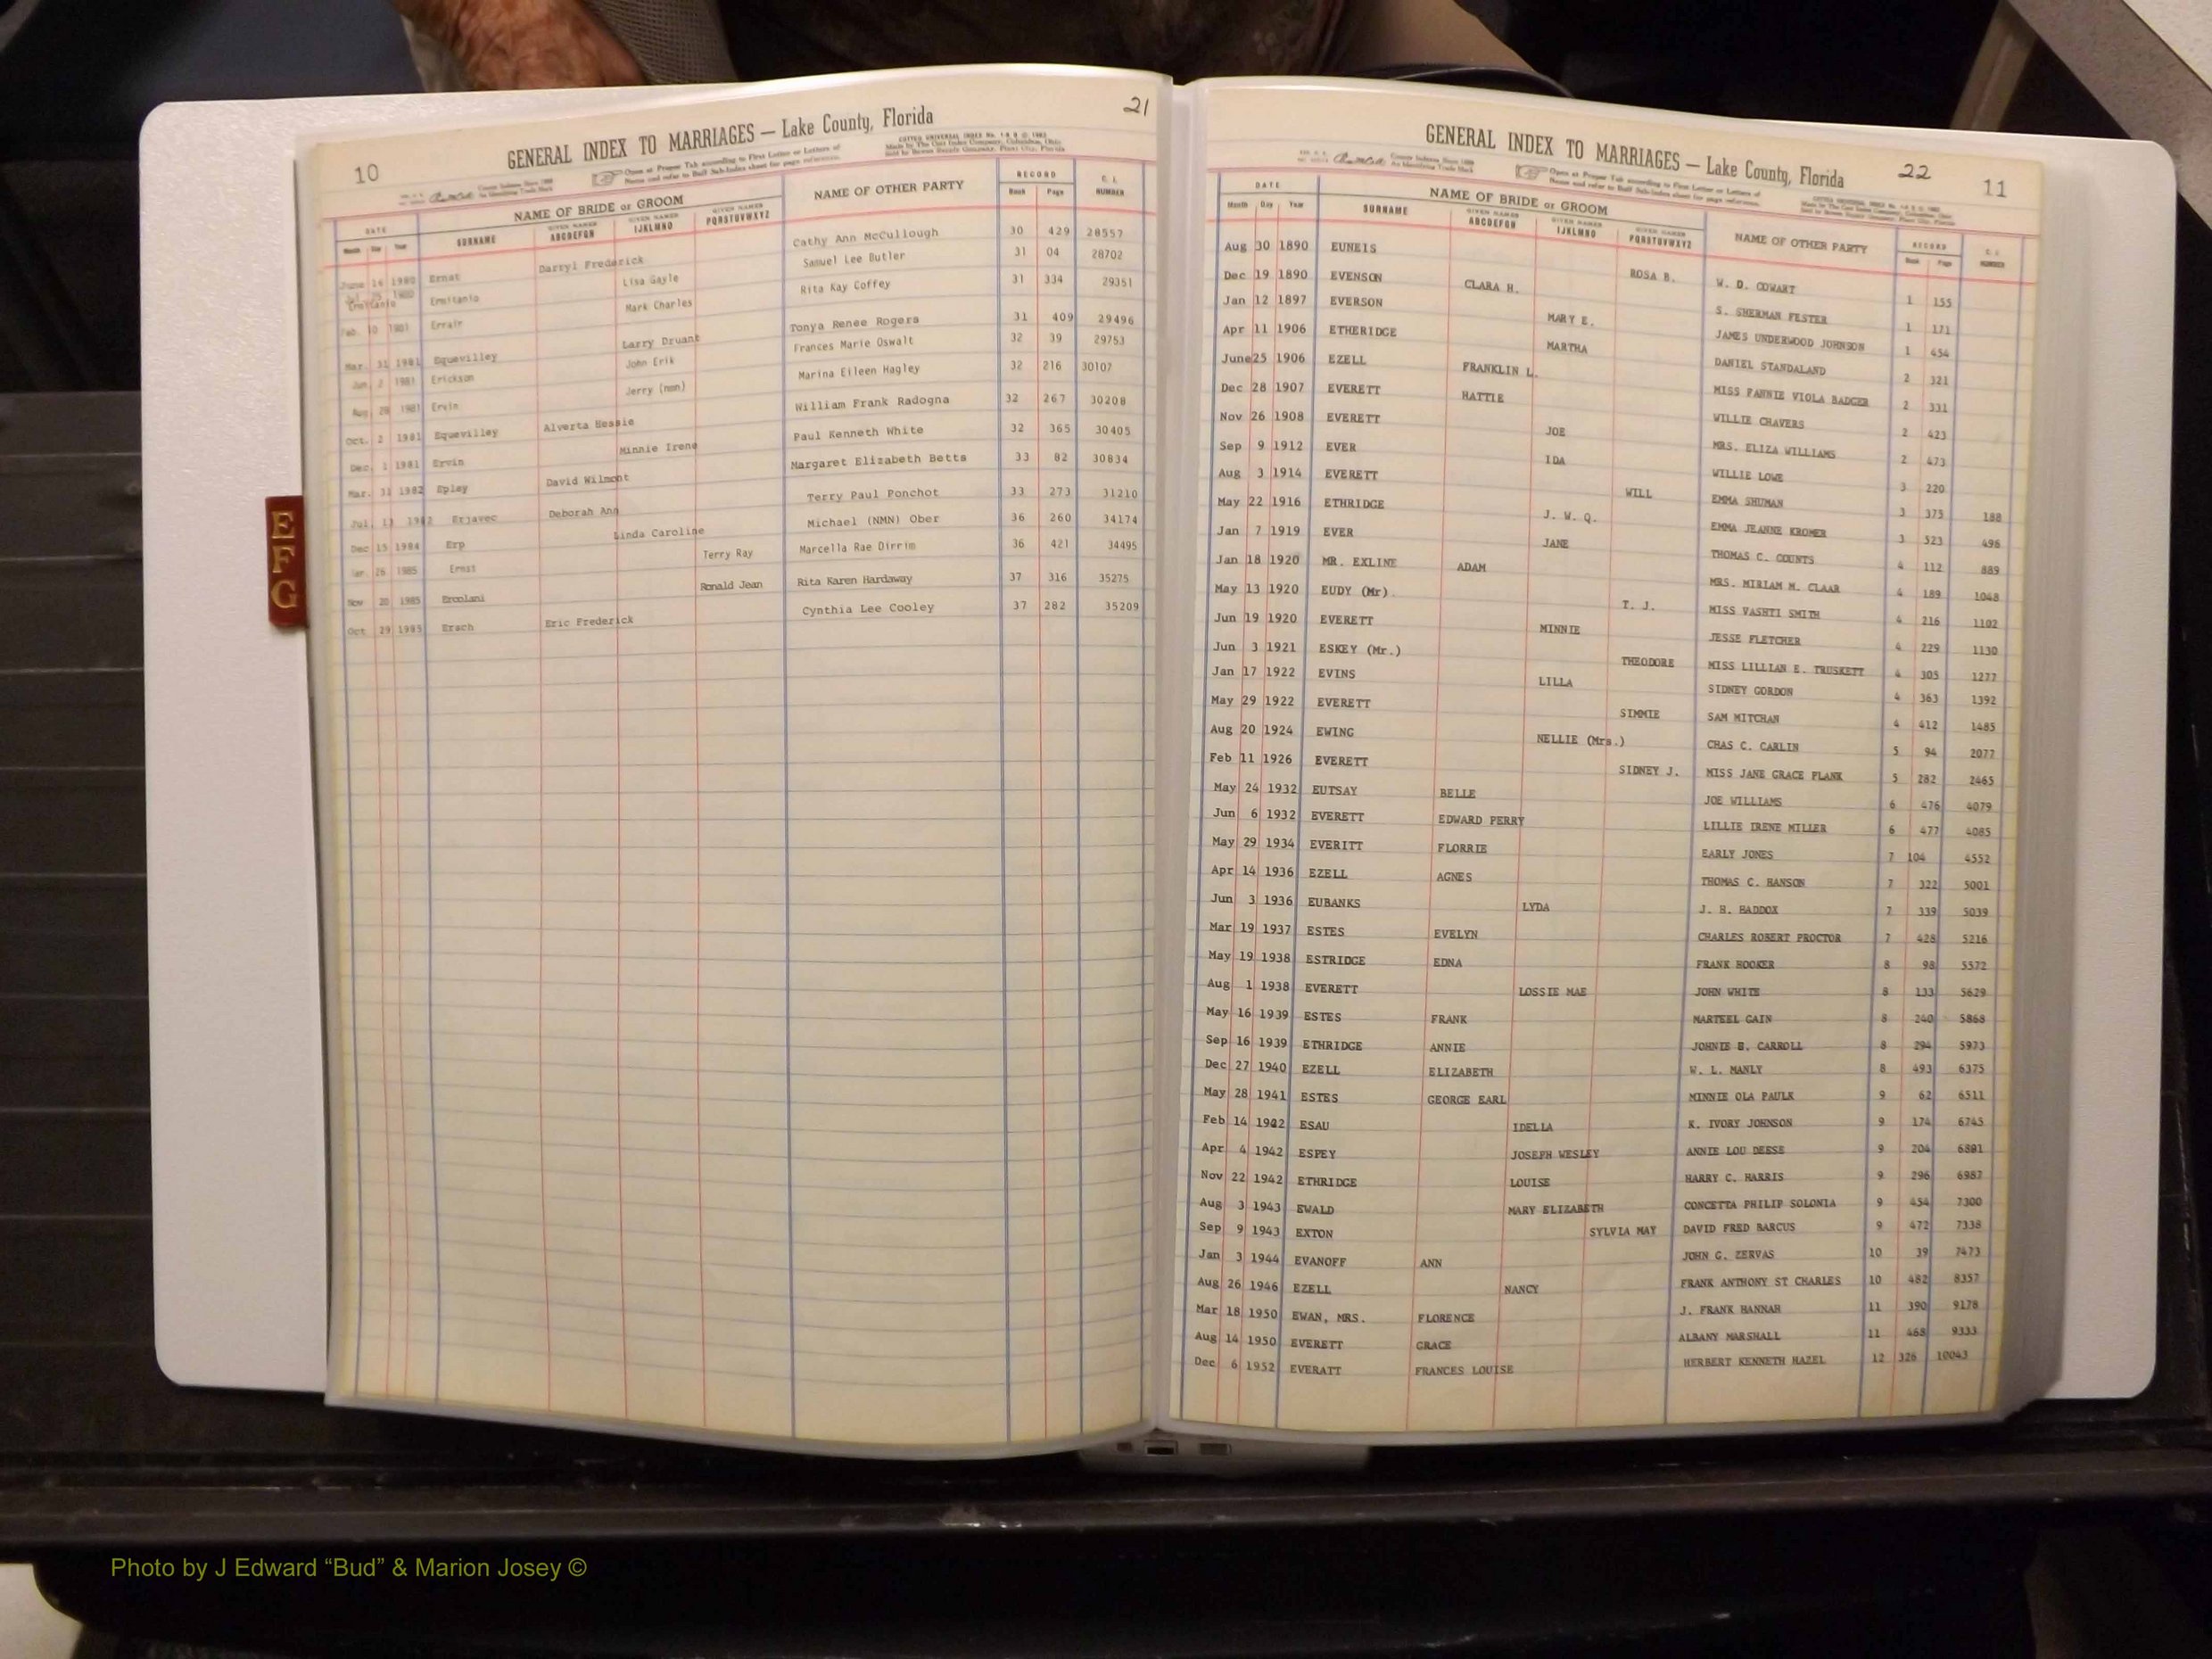 10
21
GENERAL INDEX TO MARRIAGES — Lake County, Florida
DATE NAME OF BRIDE or GROOM NAME OF OTHER PARTY RECORD NUMBER
Month Day Year SURNAME GIVEN NAMES ABCDEFGH GIVEN NAMES IJKLMNO GIVEN NAMES PQRSTUVWXYZ Book Page
June 16 1980 Ernst Darryl Frederick Cathy Ann McCullough 30 429 28557
Ermitanio Lisa Gayle Samuel Lee Butler 31 04 28702
Feb. 10 1981 Errair Mark Charles Rita Kay Coffey 31 334 29351
Mar. 31 1981 Equevilley Larry Druant Tonya Renee Rogers 31 409 29496
Jun 2 1981 Erickson John Erik Frances Marie Oswalt 32 39 29753
Aug 28 1981 Ervin Jerry (nmn) Marina Eileen Hagley 32 216 30107
Oct. 2 1981 Equevilley Alverta Hessie William Frank Radogna 32 267 30208
Dec. 1 1981 Ervin Minnie Irene Paul Kenneth White 32 365 30405
Mar. 31 1982 Epley David Wilmont Margaret Elizabeth Betts 33 82 30834
Jul. 13 1982 Erjavec Deborah Ann Terry Paul Ponchot 33 273 31210
Dec 15 1984 Erp Linda Caroline Michael (NMN) Ober 36 260 34174
26 1985 Ernst Terry Ray Marcella Rae Dirrim 36 421 34495
Nov 20 1985 Ercolani Ronald Jean Rita Karen Hardaway 37 316 35275
Oct 29 1985 Erach Eric Frederick Cynthia Lee Cooley 37 282 35209
E
F
G
GENERAL INDEX TO MARRIAGES — Lake County, Florida
22
11
DATE NAME OF BRIDE or GROOM NAME OF OTHER PARTY RECORD NUMBER
Month Day Year SURNAME GIVEN NAMES ABCDEFGH GIVEN NAMES IJKLMNO GIVEN NAMES PQRSTUVWXYZ Book Page
Aug 30 1890 EUNEIS ROSA B. W. D. COWART 1 155
Dec 19 1890 EVENSON CLARA H. S. SHERMAN FESTER 1 171
Jan 12 1897 EVERSON MARY E. JAMES UNDERWOOD JOHNSON 1 454
Apr 11 1906 ETHERIDGE MARTHA DANIEL STANDALAND 2 321
June 25 1906 EZELL FRANKLIN L. MISS FANNIE VIOLA BADGER 2 331
Dec 28 1907 EVERETT HATTIE WILLIE CHAVERS 2 423
Nov 26 1908 EVERETT JOE MRS. ELIZA WILLIAMS 2 473
Sep 9 1912 EVER IDA WILLIE LOWE 3 220
Aug 3 1914 EVERETT WILL EMMA SHUMAN 3 375 188
May 22 1916 ETHRIDGE J. W. Q. EMMA JEANNE KROMER 3 523 496
Jan 7 1919 EVER JANE THOMAS C. COUNTS 4 112 889
Jan 18 1920 MR. EXLINE ADAM MRS. MIRIAM M. CLAAR 4 189 1048
May 13 1920 EUDY (Mr) T. J. MISS VASHTI SMITH 4 216 1102
Jun 19 1920 EVERETT MINNIE JESSE FLETCHER 4 229 1130
Jun 3 1921 ESKEY (Mr.) THEODORE MISS LILLIAN E. TRUSKETT 4 305 1277
Jan 17 1922 EVINS LILLA SIDNEY GORDON 4 363 1392
May 29 1922 EVERETT SIMMIE SAM MITCHAN 4 412 1485
Aug 20 1924 EWING NELLIE (Mrs.) CHAS C. CARLIN 5 94 2077
Feb 11 1926 EVERETT SIDNEY J. MISS JANE GRACE PLANK 5 282 2465
May 24 1932 EUTSAY BELLE JOE WILLIAMS 6 476 4079
Jun 6 1932 EVERETT EDWARD PERRY LILLIE IRENE MILLER 6 477 4085
May 29 1934 EVERITT FLORRIE EARLY JONES 7 104 4552
Apr 14 1936 EZELL AGNES THOMAS C. HANSON 7 322 5001
Jun 3 1936 EUBANKS LYDA J. H. HADDOX 7 339 5039
Mar 19 1937 ESTES EVELYN CHARLES ROBERT PROCTOR 7 428 5216
May 19 1938 ESTRIDGE EDNA FRANK HOOKER 8 98 5572
Aug 1 1938 EVERETT LOSSIE MAE JOHN WHITE 8 133 5629
May 16 1939 ESTES FRANK MARTEEL GAIN 8 240 5868
Sep 16 1939 ETHRIDGE ANNIE JOHNIE B. CARROLL 8 294 5973
Dec 27 1940 EZELL ELIZABETH W. L. MANLY 8 493 6375
May 28 1941 ESTES GEORGE EARL MINNIE OLA PAULK 9 62 6511
Feb 14 1942 ESAU IDELLA K. IVORY JOHNSON 9 174 6745
Apr 4 1942 ESPEY JOSEPH WESLEY ANNIE LOU DEESE 9 204 6801
Nov 22 1942 ETHRIDGE LOUISE HARRY C. HARRIS 9 296 6987
Aug 3 1943 EWALD MARY ELIZABETH CONCETTA PHILIP SOLONIA 9 454 7300
Sep 9 1943 EXTON SYLVIA MAY DAVID FRED BARCUS 9 472 7338
Jan 3 1944 EVANOFF ANN JOHN G. ZERVAS 10 39 7473
Aug 26 1946 EZELL NANCY FRANK ANTHONY ST CHARLES 10 482 8357
Mar 18 1950 EWAN, MRS. FLORENCE J. FRANK HANNAH 11 390 9178
Aug 14 1950 EVERETT GRACE ALBANY MARSHALL 11 468 9333
Dec 6 1952 EVERATT FRANCES LOUISE HERBERT KENNETH HAZEL 12 326 10043
Photo by J Edward “Bud” & Marion Josey ©